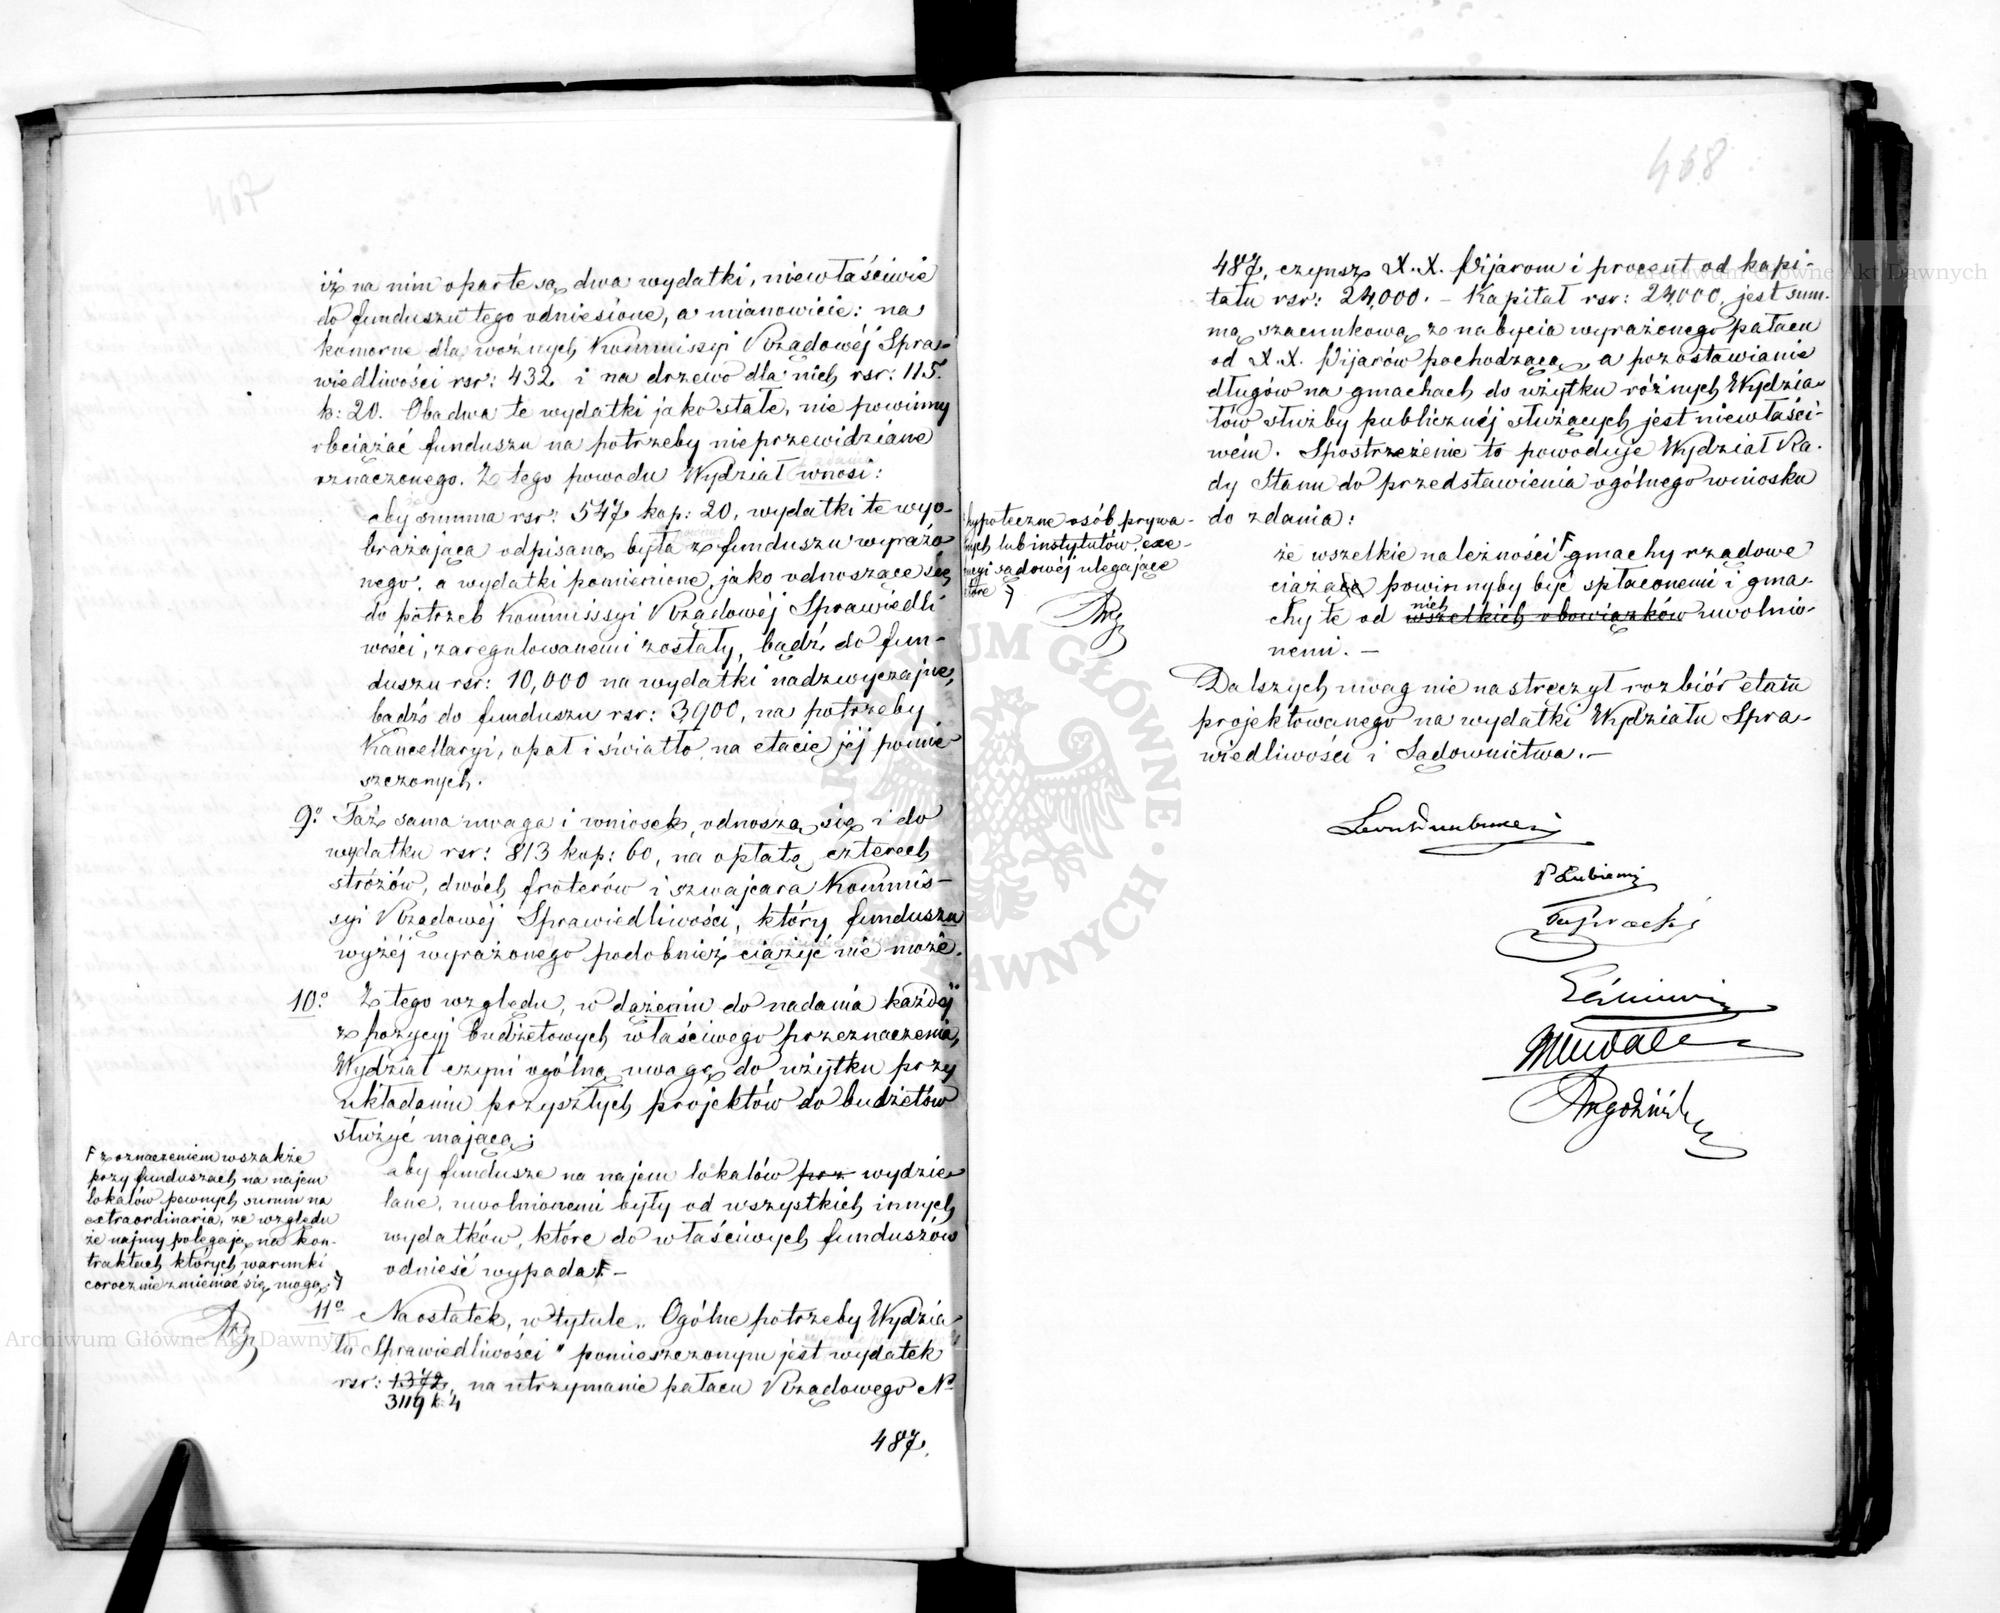 467
iż na nim oparte są dwa wydatki, niewłaściwie
do funduszu tego odniesione, a mianowicie: na
komorne dla woźnych Kommissyi Rządowéj Spra-
wiedliwości rsr: 432 i na drzewo dla nich rsr: 115.
k: 20. Obadwa te wydatki jako stałe, nie powinny
obciążać funduszu na potrzeby nieprzewidziane
oznaczonego. Z tego powodu Wydział wnosi:
aby summa rsr: 547 kop: 20, wydatki te wyo-
brażająca odpisaną była z funduszu wyrażo
nego, a wydatki pomienione, jako odnoszące się
do potrzeb Kommissyi Rządowéj Sprawiedli
wości, zaregulowanemi zostały, bądź do fun-
duszu rsr: 10,000 na wydatki nadzwyczajne,
bądź do funduszu rsr: 3,900, na potrzeby
Kancellaryi, opał i światło, na etacie jéj pomie
szczonych.
9o Taż sama uwaga i wniosek, odnoszą się i do
wydatku rsr: 813 kop: 60, na opłatę czterech
stróżów, dwóch froterów i szwajcara Kommis-
syi Rządowéj Sprawiedliwości, który funduszu
wyżéj wyrażonego podobnież ciążyć nie może.
10o Z tego względu, w dążeniu do nadania każdéj
z pozycyj budżetowych właściwego przeznaczenia,
Wydział czyni ogólną uwagę do użytku przy
układaniu przyszłych projektów do budżetów
służyć mającą;
aby fundusze na najem lokalów prz wydzie
lane, uwolnionemi były od wszystkich innych
wydatków, które do właściwych funduszów
odnieść wypada F –
F z oznaczeniem wszakże
przy funduszach na najem
lokalów pewnych summ na
extraordinaria, ze względu
że najmy polegają na kon-
traktach których warunki
corocznie zmieniać się mogą. F
11o Na ostatek, w tytule „Ogólne potrzeby Wydzia
łu Sprawiedliwości" pomieszczonym jest wydatek
rsr: 1372, na utrzymanie pałacu Rządowego No
3119 k. 4
487.
468
487, czynsz X.X. Pijarom i procent od kapi-
tału rsr: 24,000. – Kapitał rsr: 24,000, jest sum-
mą szacunkową z nabycia wyrażonego pałacu
od X.X. Pijarów pochodzącą, a pozostawianie
długów na gmachach do użytku różnych Wydzia-
łów służby publicznéj służących jest niewłaści-
wém. Spostrzeżenie to powoduje Wydział Ra-
dy Stanu do przedstawienia ogólnego wniosku
do zdania:
że wszelkie należności F gmachy rządowe
ciążące powinnyby być spłaconemi i gma-
chy te od wszelkich obowiązków uwolnio-
nich
nemi. –
hypoteczne osób prywa-
tnych lub instytutów, exe-
kucyi sądowéj ulegające
które F
Dalszych uwag nie nastręczył rozbiór etatu
projektowanego na wydatki Wydziału Spra-
wiedliwości i Sądownictwa. –
Archiwum Główne Akt Dawnych
Archiwum Główne Akt Dawnych
ARCHIWUM GŁÓWNE AKT DAWNYCH